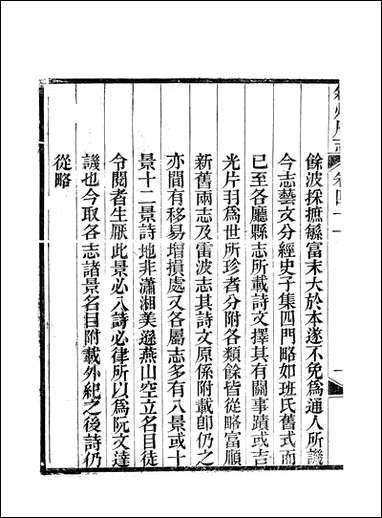 餘波採摭緐富末大於本遂不免爲通人所譏
今志藝文分經史子集四門略如班氏舊式而
已至各廳縣志所載詩文擇其有關事蹟或吉
光片羽爲世所珍者分附各類餘皆從略富順
新舊兩志及雷波志其詩文原係附載卽仍之
亦間有移易增損處又各屬志多有八景或十
景十二景詩地非瀟湘美遜燕山空立名目徒
令閱者生厭此景必入詩必律所以爲阮文達
譏也今取各志諸景名目附載外紀之後詩仍
從略
敘州府志
卷四十一
一